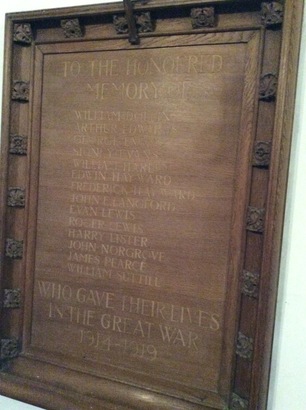 TO THE HONOURED
MEMORY OF
WILLIAM
ARTHUR
EDWIN HAYWARD
FREDERICK HAYWARD
JOHN E LANGFORD
EVAN LEWIS
ROGER LEWIS
HARRY LYSTER
JOHN NORGROVE
JAMES PEARCE
WILLIAM SUTTILL
WHO GAVE THEIR LIVES
IN THE GREAT WAR
1914-1919